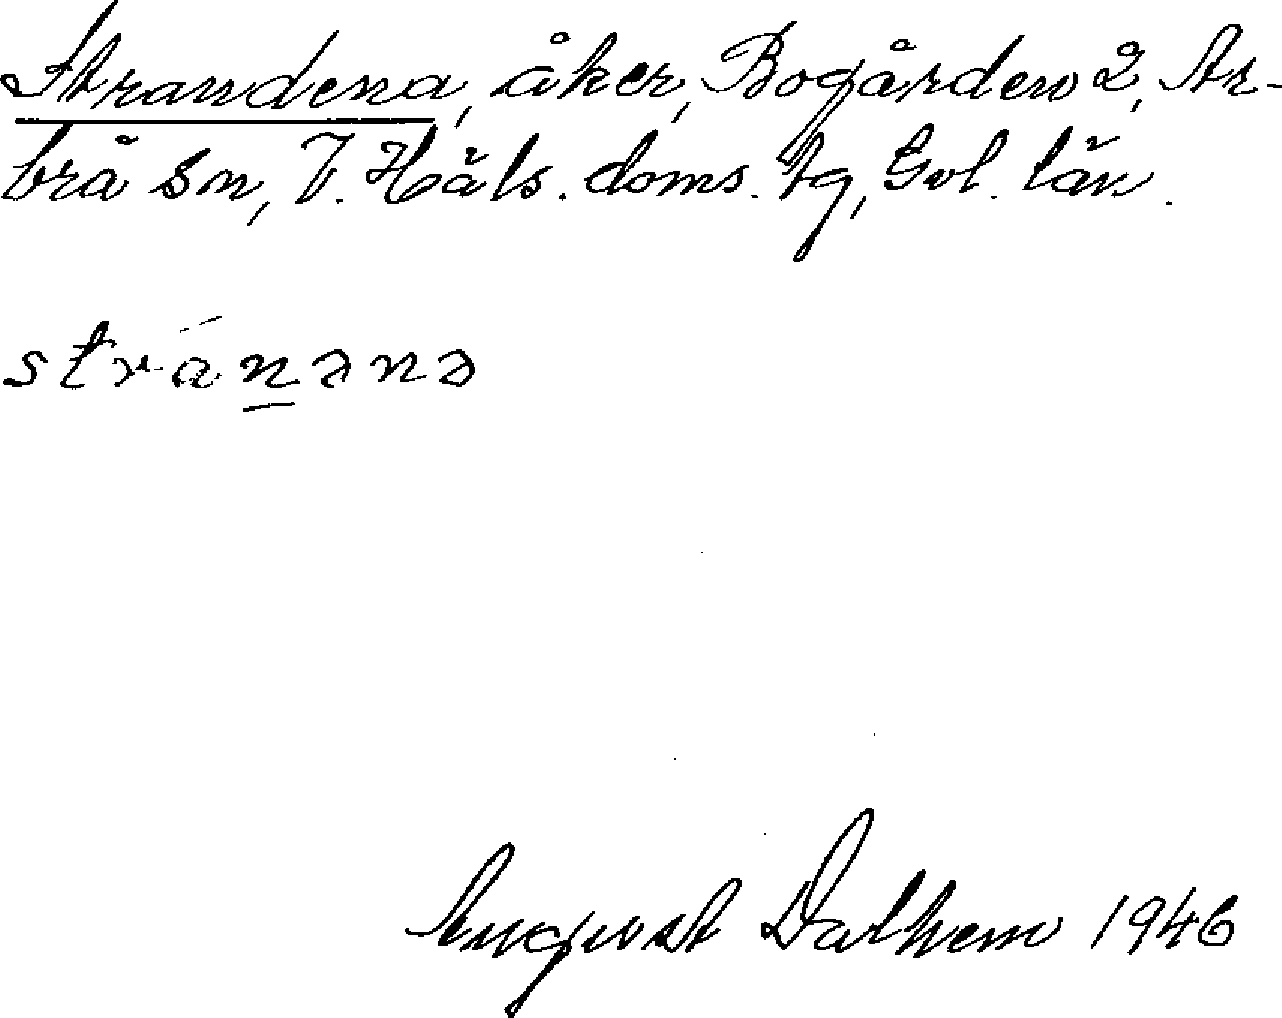 Strandena, åker, Bogården 2, Ar-
brå sn, V. Häls. doms. tg, Gvl. län.
stránənə
August Dalhem 1946